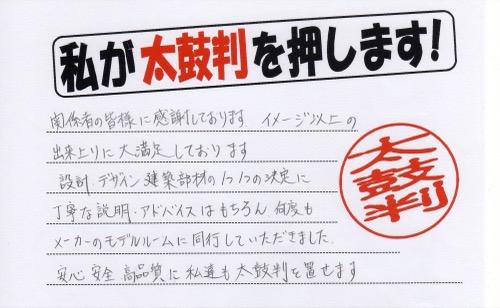 私が太鼓判を押します!
関係者の皆様に感謝しております イメージ以上の
出来上りに大満足しております
設計、デザイン、建築部材の1つ1つの決定に
丁寧な説明・アドバイスはもちろん 何度も
メーカーのモデルルームに同行していただきました。
安心 安全 高品質に 私達も太鼓判を置せます
太鼓判